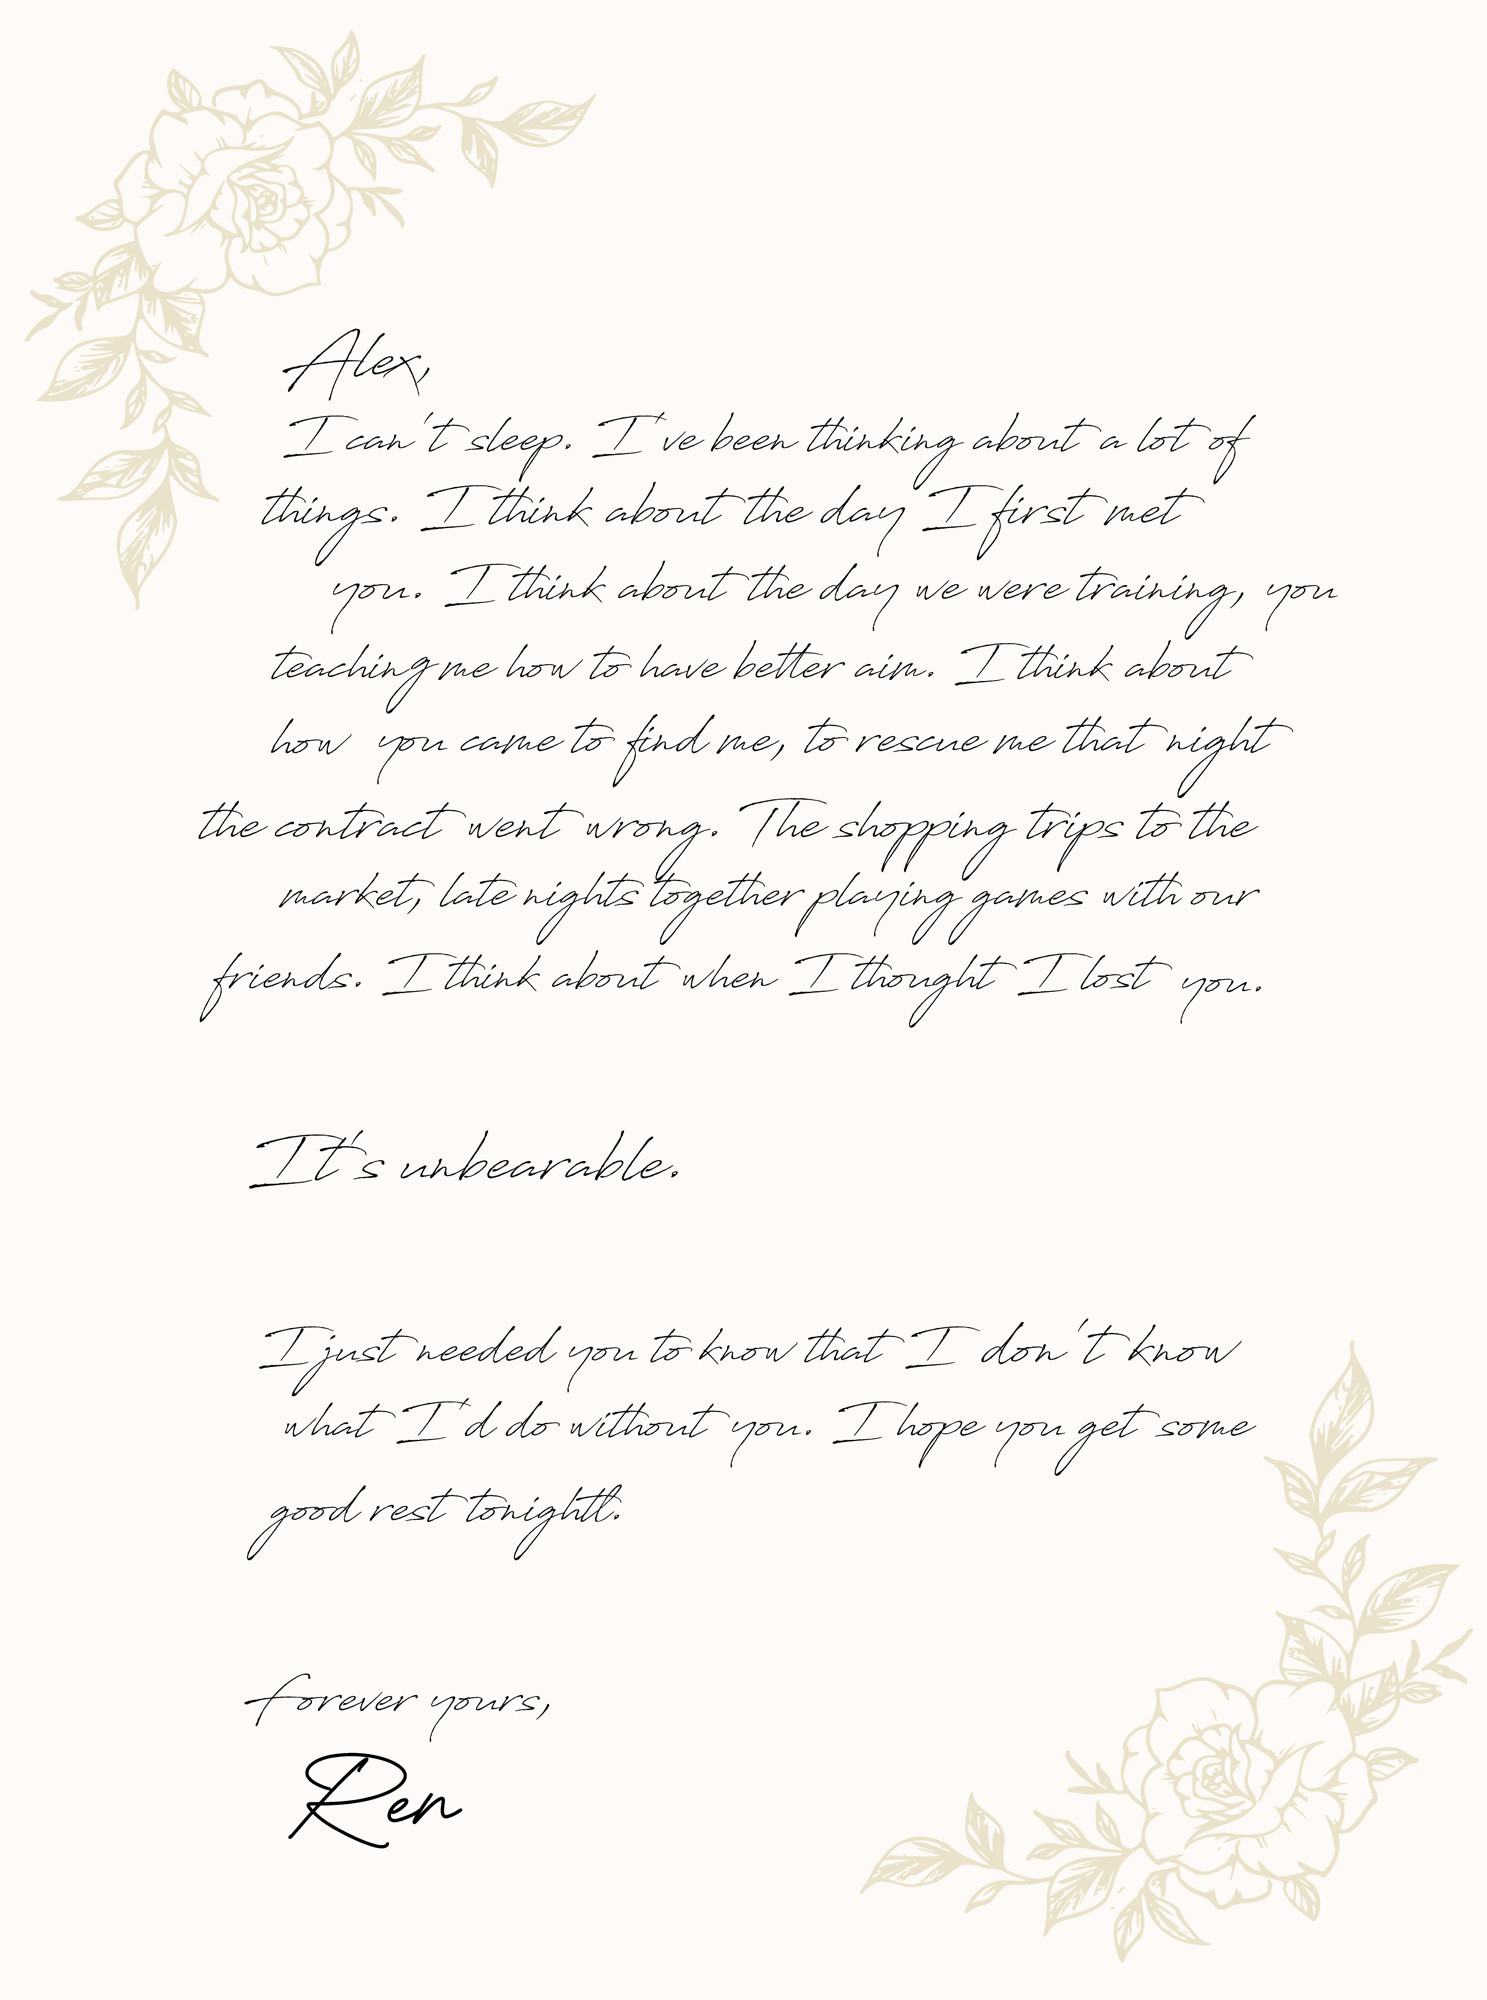 Alex,
I can't sleep. I've been thinking about a lot of
things. I think about the day I first met
you. I think about the day we were training, you
teaching me how to have better aim. I think about
how you came to find me, to rescue me that night
the contract went wrong. The shopping trips to the
market, late nights together playing games with our
friends. I think about when I thought I lost you.
It's unbearable.
I just needed you to know that I don't know
what I'd do without you. I hope you get some
good rest tonightt.
forever yours,
Ren